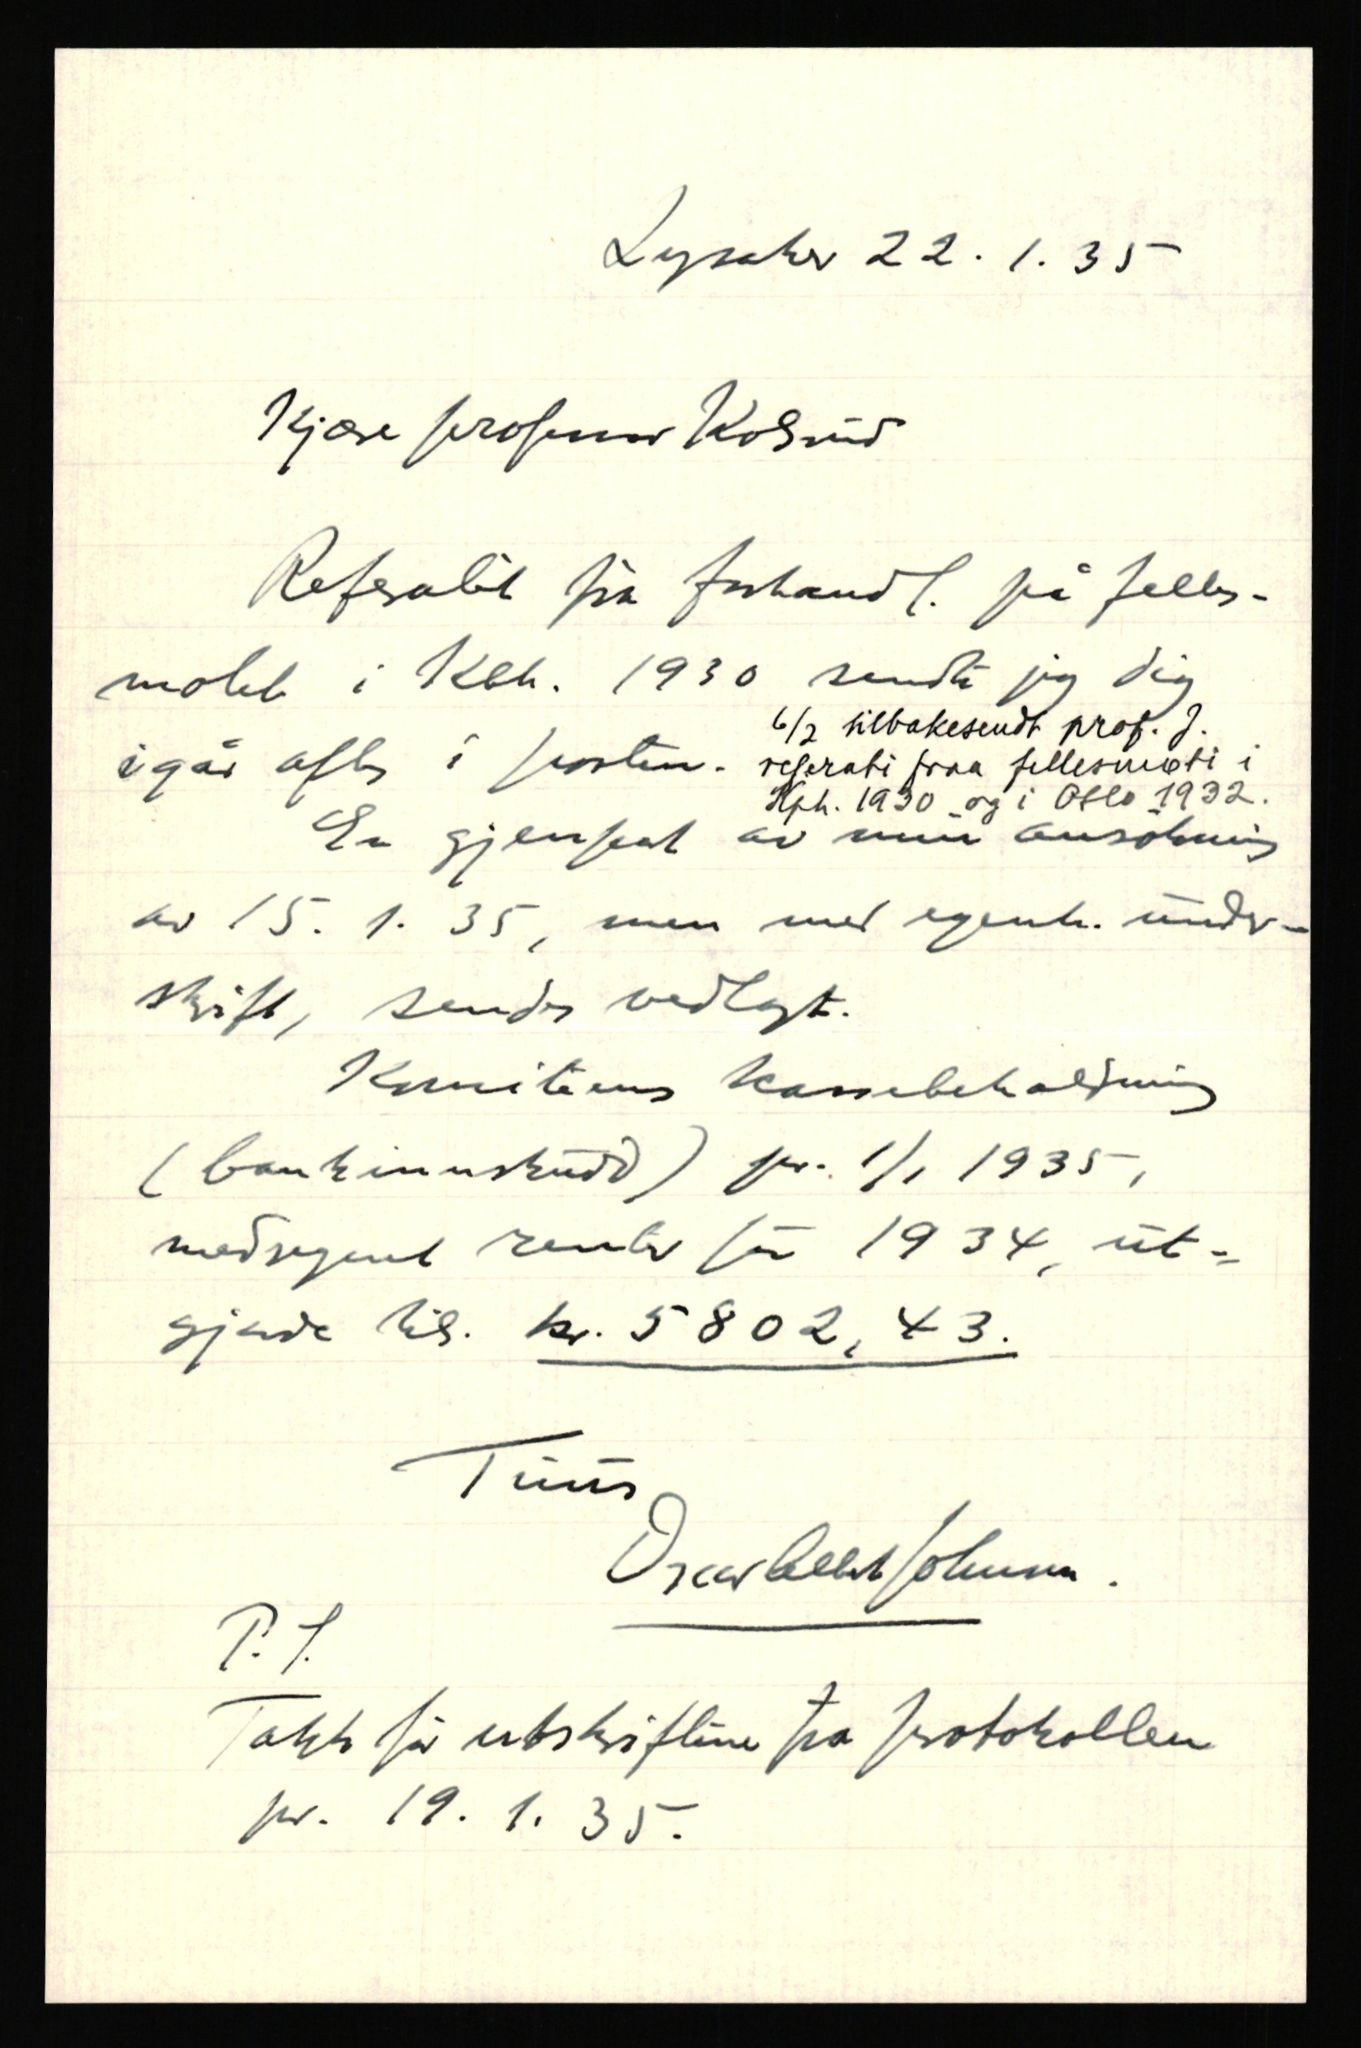 Lysaker 22. 1. 35
Kjære professor Kolsrud
Referatet fra forhandl. på felles-
møtet i Kbh. 1930 sendte jeg dig
igår aftes i posten.
6/2 tilbakesendt prof. J.
referati fraa fellesmøti i
Kph. 1930 og i Oslo 1932.
En gjenpart av min ansökning
av 15. 1. 35, men med egenh. under-
skrift, sendes vedlagt.
Komiteens kassebeholdning
(bankinnskudd) pr. 1/1 1935,
medregnet renter for 1934, ut-
gjorde kr. 5802,43.
Tuus
Oscar Albert Johnsen.
P.S.
Takk for utskriftene fra protokollen
pr. 19. 1. 35.